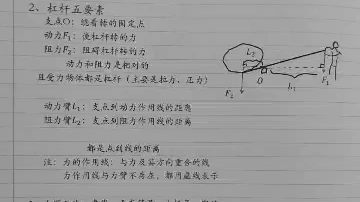 2、杠杆五要素
支点O：绕着转的固定点
动力F₁：使杠杆转的力
阻力F₂：阻碍杠杆转的力
动力和阻力是相对的
且受力物体都是杠杆（主要是拉力、压力）
动力臂L₁：支点到动力作用线的距离
阻力臂L₂：支点到阻力作用线的距离
都是点到线的距离
注：力的作用线：与力及其方向重合的线
力作用线与力臂不存在，都用虚线表示
L₂
F₂
O
L₁
F₁